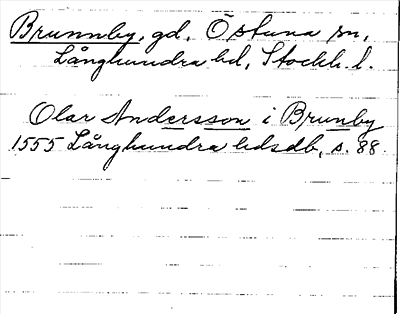 Brunnby, gd, Östuna sn,
Långhundra hd, Stockh. l.
Olar Andersson i Brunby
1555 Långhundra hds db, s. 88